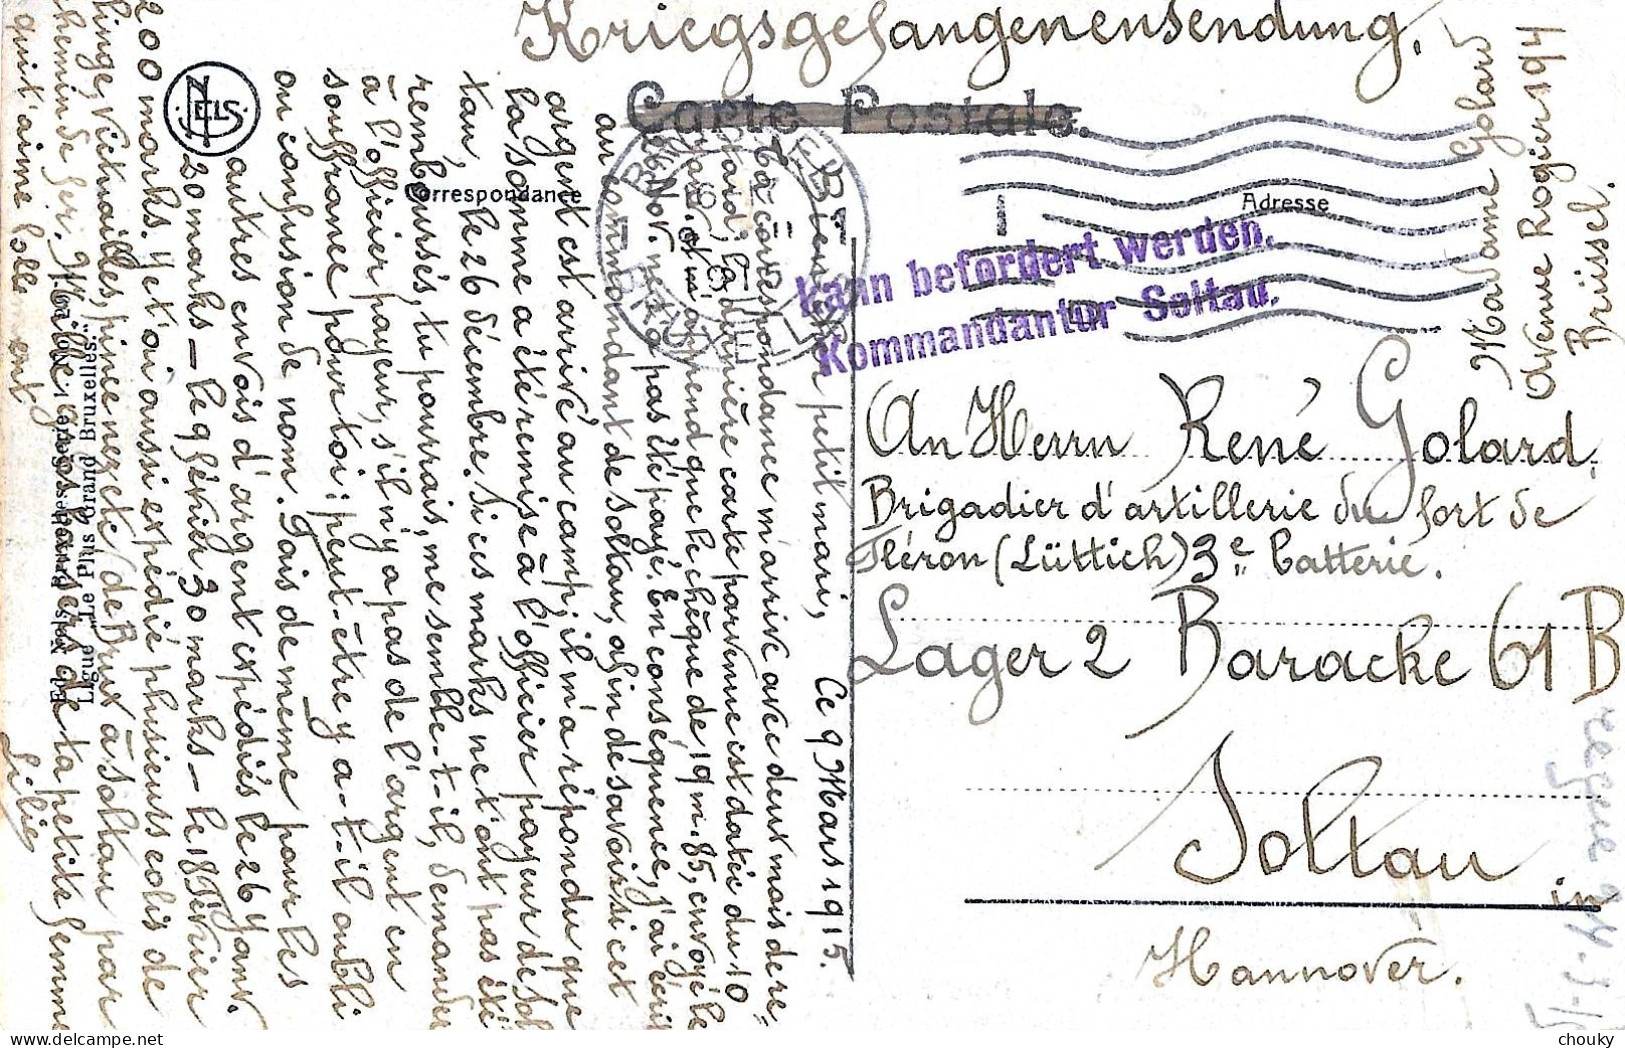 Kriegsgefangenensendung.
Carte Postale.
Correspondance
Adresse
kann befördert werden.
Kommandantur Soltau.
Madame Golard
Avenue Rogier 194
Brüssel.
An Herrn René Golard,
Brigadier d'artillerie du fort de
Fléron (Lüttich) 3e batterie.
Lager 2 Baracke 61 B
Soltau
in
Hannover.
Ce 9 Mars 1915.
Bien cher petit mari,
Ta correspondance m'arrive avec deux mois de re-
tard; la dernière carte parvenue est datée du 10
Janv. et m'apprend que le chèque de 19 m. 85, envoyé le
Nov. ne t'a pas été payé. En conséquence, j'ai écrit
au commandant de Soltau, afin de savoir si cet
argent est arrivé au camp; il m'a répondu que
la somme a été remise à l'officier payeur de Sol
tau, le 26 décembre. Si ces marks ne t'ont pas été
remboursés, tu pourrais, me semble-t-il, demander
à l'officier payeur, s'il n'y a pas de l'argent en
souffrance pour toi: peut-être y a-t-il oubli
ou confusion de nom. Fais de meme pour les
autres envois d'argent expédiés le 26 Janv.
20 marks — le 9 février 30 marks — le 18 Février
200 marks. Je t'ai aussi expédié plusieurs colis de
linge, victuailles, pince nez etc (de Brux à Soltau par
chemin de fer. Mille baisers de ta petite femme
qui t'aime follement
Lilie
NELS
Ern. Thill, Bruxelles
Ligue "Le Plus Grand Bruxelles."
reçue 24-3-15
chouky